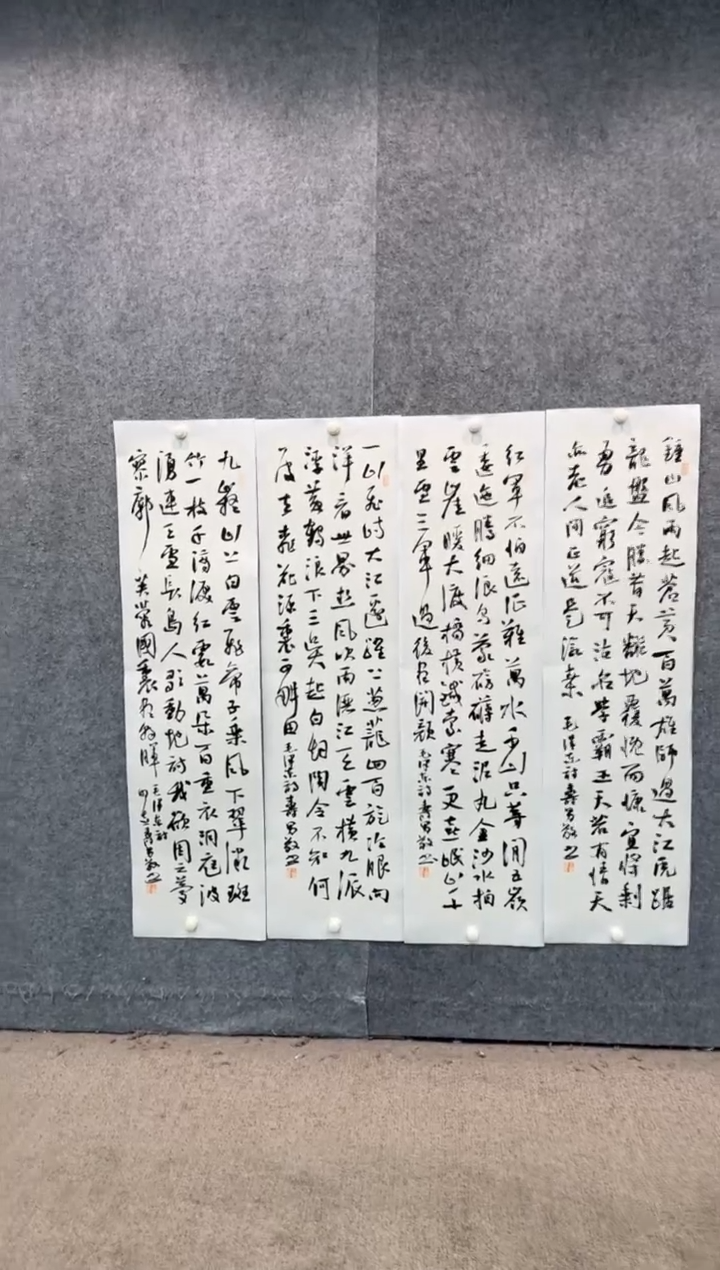 鍾山風雨起蒼黃百萬雄師過大江虎踞
龍盤今勝昔天翻地覆慨而慷宜將剩
勇追窮寇不可沽名學霸王天若有情天
亦老人間正道是滄桑 毛澤東詩壽昌敬書
紅軍不怕遠征難萬水千山只等閒五嶺
逶迤騰細浪烏蒙磅礴走泥丸金沙水拍
雲崖暖大渡橋橫鐵索寒更喜岷山千
里雪三軍過後盡開顏 毛澤東詩壽昌敬書
一山飛峙大江邊躍上蔥蘢四百旋冷眼向
洋看世界熱風吹雨灑江天雲橫九派
浮黃鶴浪下三吳起白煙陶令不知何
處去桃花源裏可耕田 毛澤東詩壽昌敬書
九嶷山上白雲飛帝子乘風下翠微斑
竹一枝千滴淚紅霞萬朵百重衣洞庭波
湧連天雪長島人歌動地詩我欲因之夢
寥廓芙蓉國裏盡朝暉 毛澤東詩
壽昌敬書